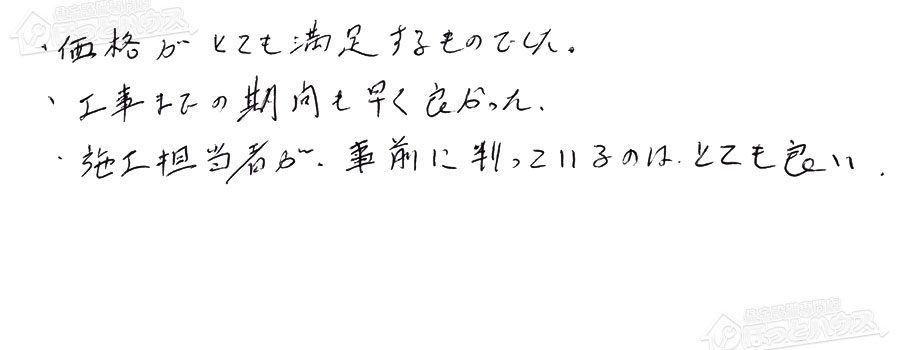 ・価格がとても満足するものでした。
・工事までの期間も早く良かった.
・施工担当者が、事前に判っているのは、とても良い.
住宅設備専門店
ほっとハウス
住宅設備専門店
ほっとハウス